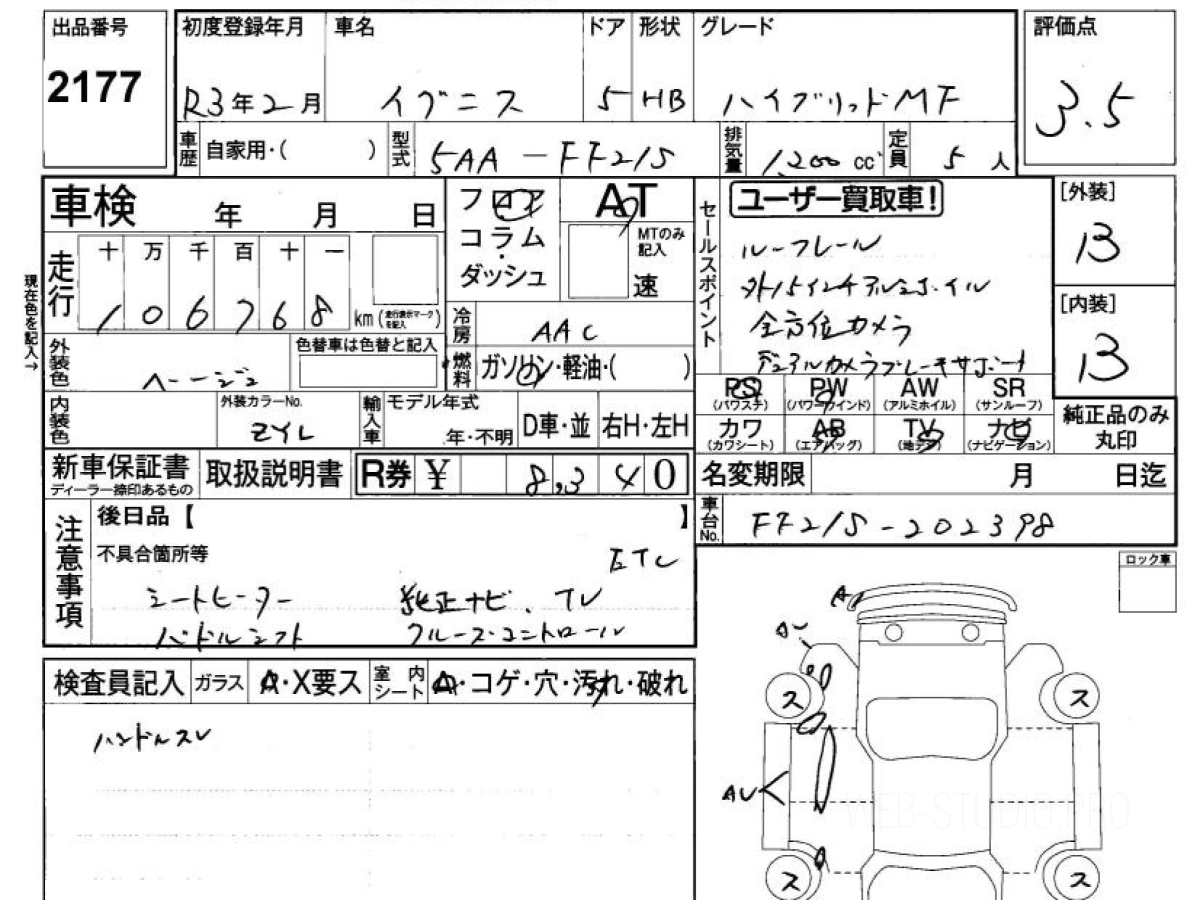 出品番号 初度登録年月 車名 ドア 形状 グレード 評価点
2177 R3年2月 イグニス 5 HB ハイブリッドMF 3.5
車歴 自家用・( ) 型式 5AA-FF21S 排気量 1,200cc 定員 5人
車検 年 月 日
フロア
コラム
・
ダッシュ
AT
MTのみ記入
速
セールスポイント
ユーザー買取車!
ルーフレール
外15インチアルミホイル
全方位カメラ
デュアルカメラブレーキサポート
[外装]
B
[内装]
B
現在色を記入→
走行 十 万 千 百 十 一
1 0 6 7 6 8 km (走行表示マークを記入)
冷房 AAC
外装色 ベージュ 色替車は色替と記入
燃料 ガソリン・軽油・( )
PS (パワステ) PW (パワーウインド) AW (アルミホイル) SR (サンルーフ)
カワ (カワシート) AB (エアバッグ) TV (地デジ) ナビ (ナビゲーション)
純正品のみ丸印
内装色 外装カラーNo. ZYL 輸入車 モデル年式 年・不明 D車・並 右H・左H
新車保証書 ディーラー捺印あるもの 取扱説明書 R券 ¥ 8,340
名変期限 月 日迄
車台No. FF21S-202398
注意事項
後日品【 】
不具合箇所等 ETC
シートヒーター 純正ナビ、TV
パドルシフト クルーズコントロール
ロック車
検査員記入 ガラス A・X要ス 室内シート A・コゲ・穴・汚れ・破れ
ハンドルスレ
A
AU
ス ス
AU
ス ス
WEB-STUDIO.PRO